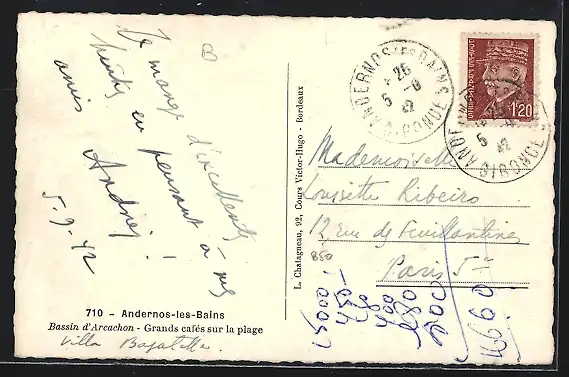 Je mange d'excellentes
huîtres en pensant à mes
amies
Andrée !
5-9-42
710 - Andernos-les-Bains
Bassin d'Arcachon - Grands cafés sur la plage
Villa Bagatelle.
L. Chatagneau, 92, Cours Victor-Hugo - Bordeaux
ANDERNOS LES BAINS
5 -9
42
GIRONDE
1f20
Mademoiselle
Louisette Ribeiro
12 rue des Feuillantines
Paris 5
850